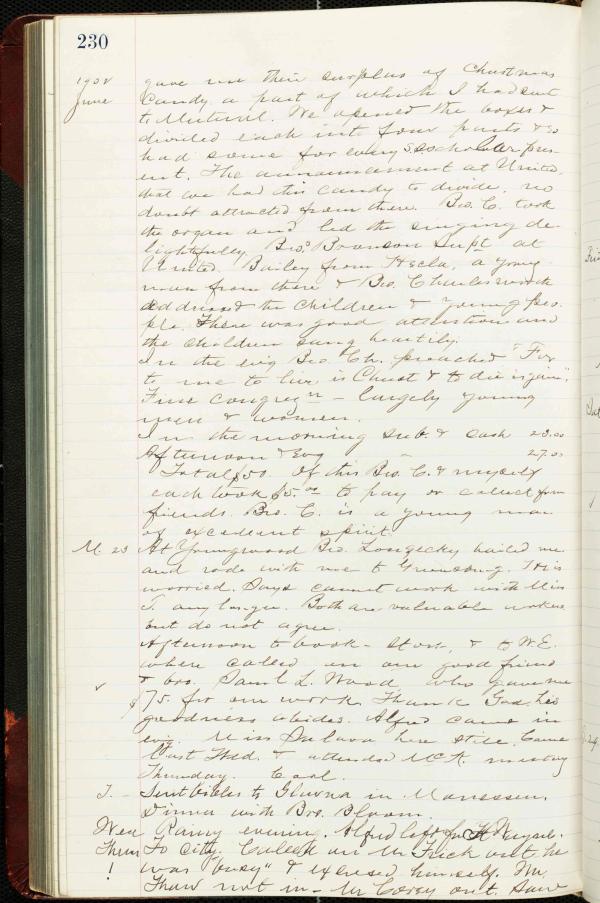 230
1902 gave me their surplus of Christmas
June Candy, a part of which I had sent
to Mutual. We opened the boxes &
divided each into four parts & so
had some for every S.S. scholar pres
ent. The announcement at United,
that we had this candy to divide, no
doubt attracted from there. Bro. C. took
the organ and led the singing de
lightfully. Bro. Branson Supt at
United. Bailey from Hecla, a young
man from there & Bro. Charles
addressed the children & young peo
ple. There was good attention and
the children sang heartily.
In the evg Bro Ch. preached "For
to me to live is Christ & to die is gain".
Fine congregn - largely young
men & women.
In the morning Sub. & cash 23.00
Afternoon & Evg 27.00
Total $50. Of this Bro. C. & myself
each took $5.00 to pay or collect from
friends. Bro. C. is a young man
of excellent spirit.
M. 23 At Youngwood Bro. Longecky hailed me
and rode with me to Greensburg. He is
worried. Says cannot work with Miss
S. any longer. Both are valuable workers
but do not agree.
Afternoon to book-store, & to W.E.
where called on our good friend
& bro. Saml L. Wood, who gave me
$75. for our work. Thank God, his
goodness abides. Alfred came in
evg. Miss here still. Came
last Wed. & attended meeting
Thursday. Cool.
T. - Sent bibles to in Monessen.
Dinner with Bro. Bloom.
Wed Rainy evening. Alfred left for
Thurs To City. Called on Mr Frick but he
! was "busy" & excused himself. Mr
Thaw not in - Mr Corey out. Saw